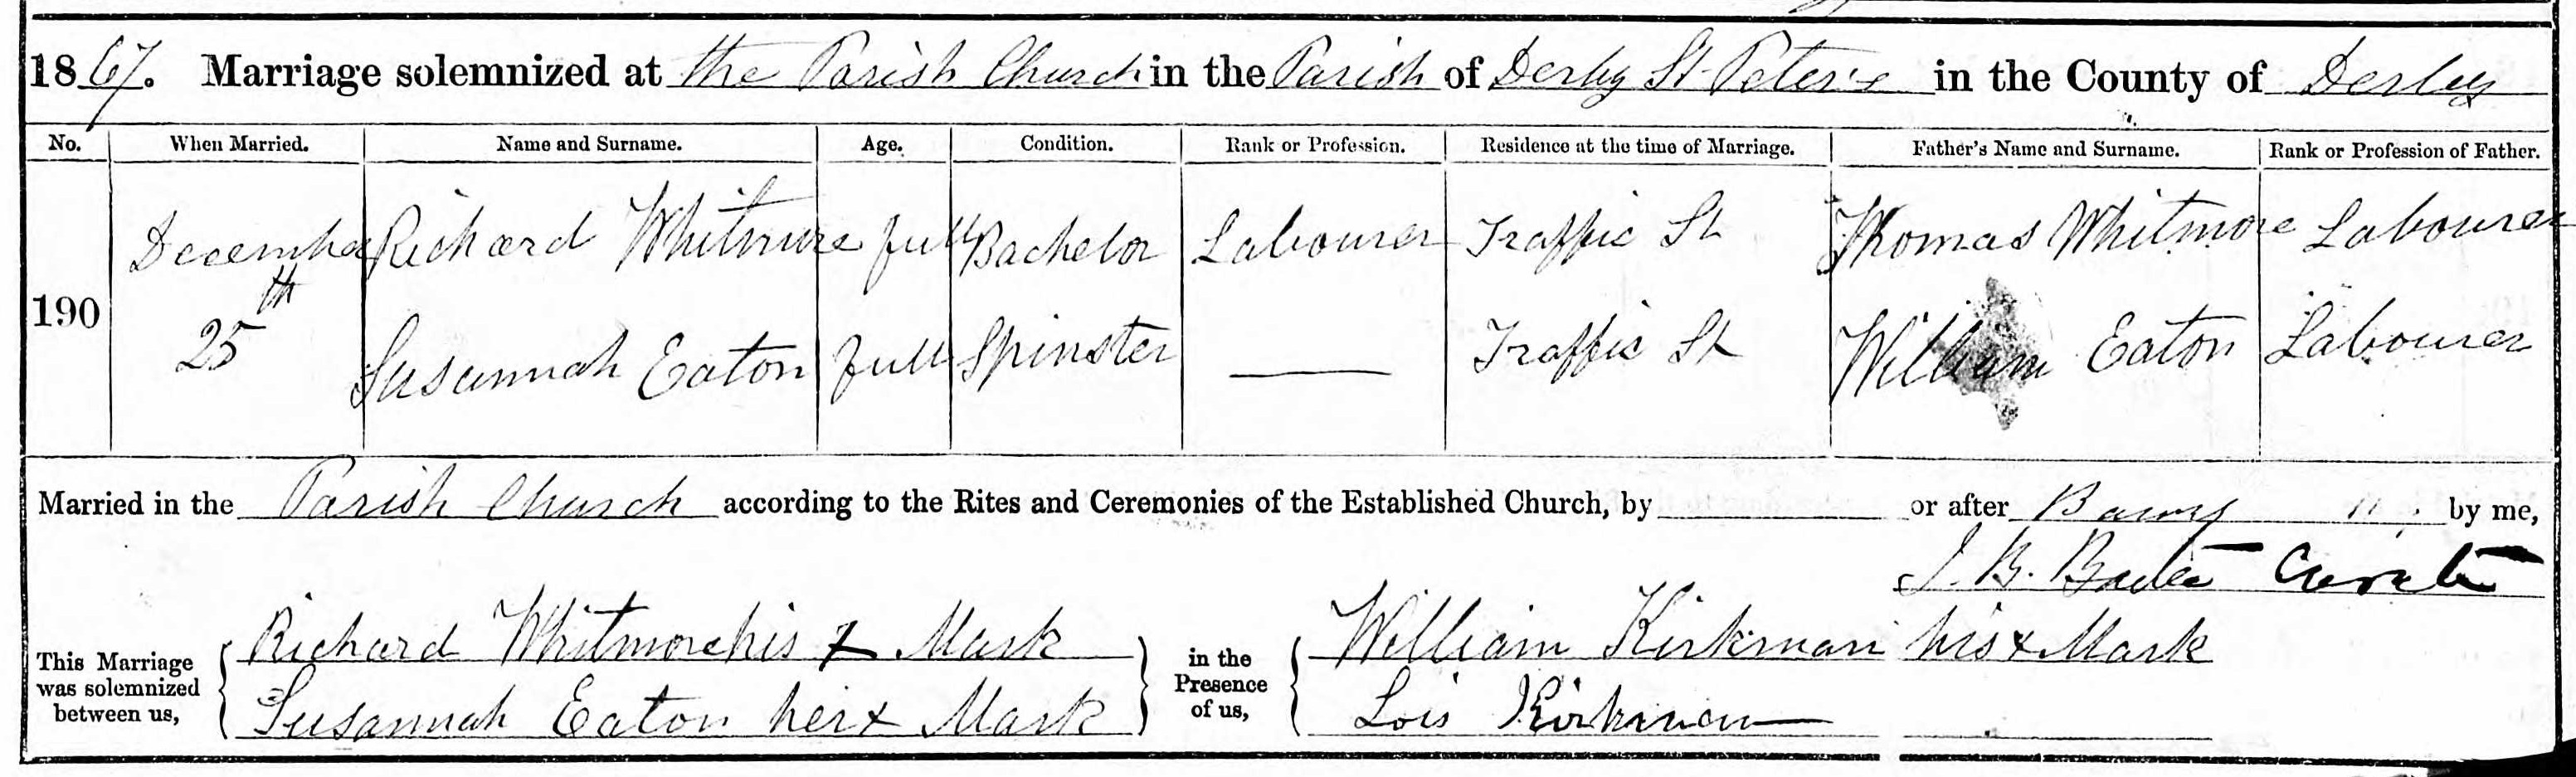 1867. Marriage solemnized at the Parish Church in the Parish of Derby St. Peter's in the County of Derby
No. When Married. Name and Surname. Age. Condition. Rank or Profession. Residence at the time of Marriage. Father's Name and Surname. Rank or Profession of Father.
December Richard Whitmore full Bachelor Labourer Traffic St Thomas Whitmore Labourer
190 25th Susannah Eaton full Spinster — Traffic St William Eaton Labourer
Married in the Parish Church according to the Rites and Ceremonies of the Established Church, by or after Banns by me,
J. B. Curate
This Marriage was solemnized between us, Richard Whitmore his x Mark in the Presence of us, William Kirkman his x Mark
Susannah Eaton her x Mark Lois Kirkman